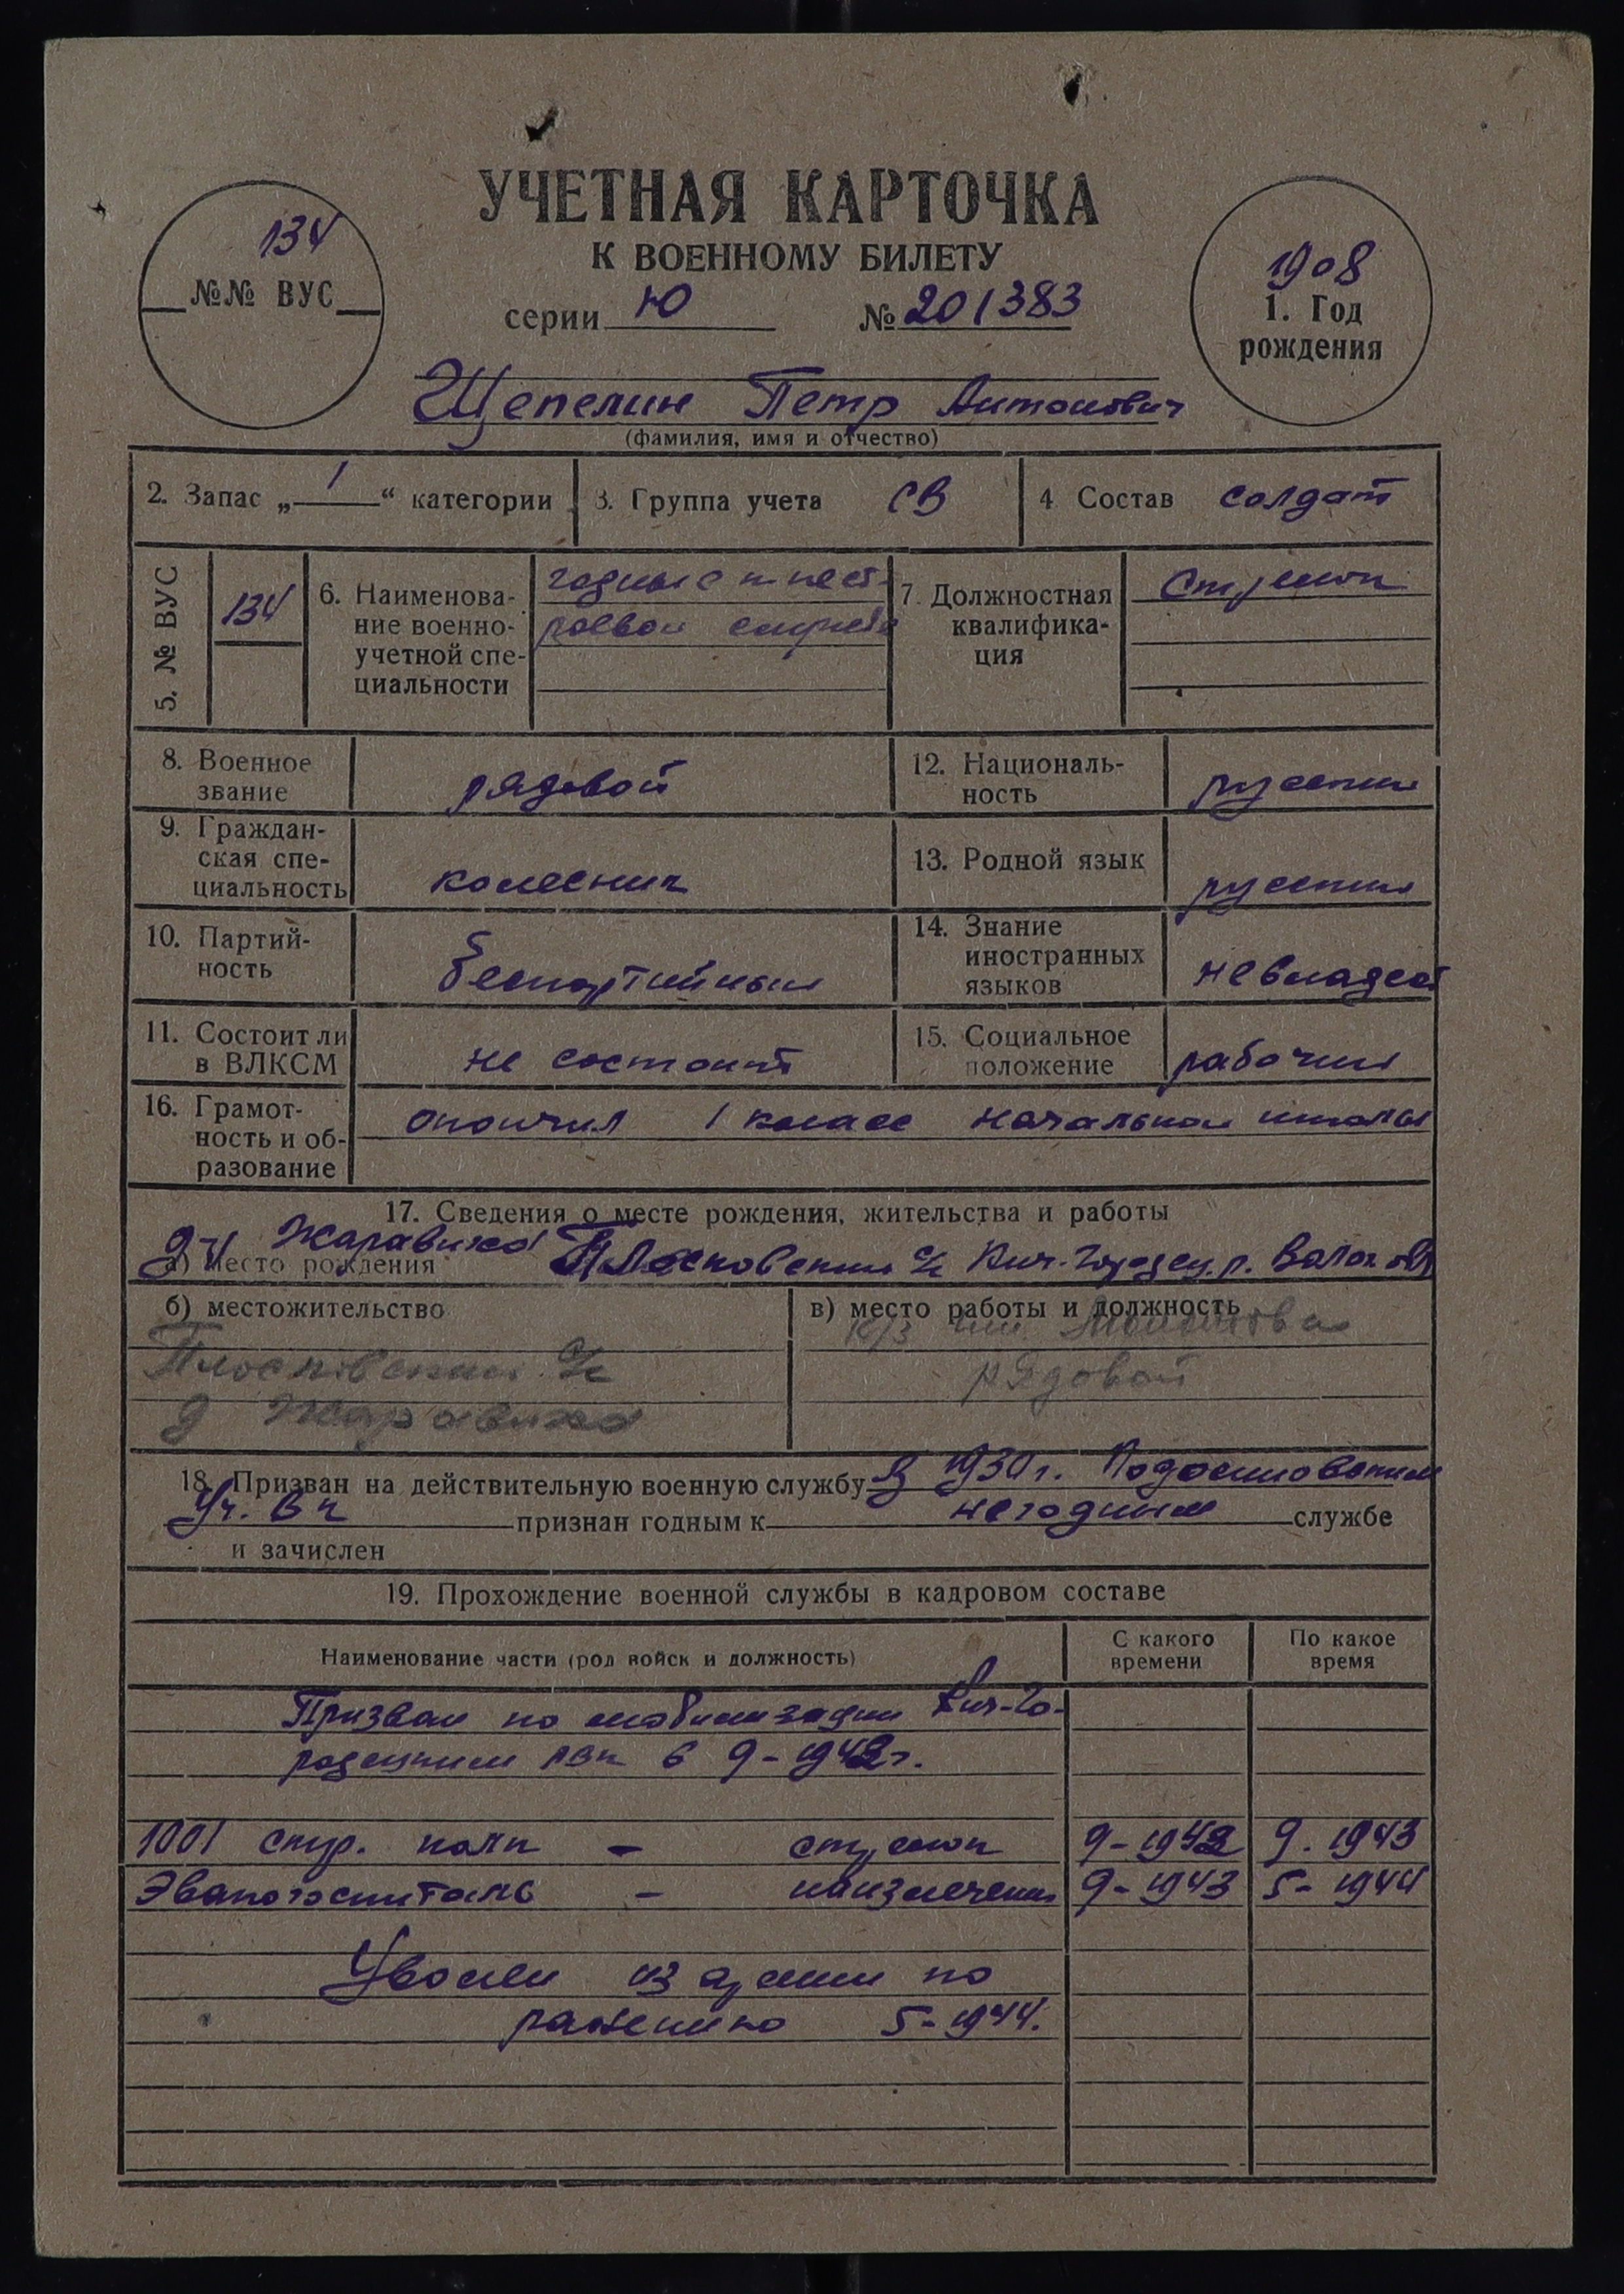 УЧЕТНАЯ КАРТОЧКА
К ВОЕННОМУ БИЛЕТУ
134
№№ ВУС
серии Ю № 201383
1908
1. Год
рождения
Щепелин Петр Антонович
(фамилия, имя и отчество)
2. Запас „ 1 “ категории
3. Группа учета СВ
4 Состав солдат
5. № ВУС
134
6. Наименова-
ние военно-
учетной спе-
циальности
годные к нест-
роевой службе
7. Должностная
квалифика-
ция
Стрелок
8. Военное
звание
рядовой
12. Националь-
ность
русский
9. Граждан-
ская спе-
циальность
колесник
13. Родной язык
русский
10. Партий-
ность
беспартийный
14. Знание
иностранных
языков
невладеет
11. Состоит ли
в ВЛКСМ
не состоит
15. Социальное
положение
рабочий
16. Грамот-
ность и об-
разование
окончил 1 класс начальной школы
17. Сведения о месте рождения, жительства и работы
а) место рождения
Жаравиха Плосковский с/с Кич-Городец. р. Волог обл
б) местожительство
Плосковский с/с
д Жаравиха
в) место работы и должность
к/з им. Молотова
рядовой
18. Призван на действительную военную службу В 1930 г. Подосиновским
Уч. ВК признан годным к негодным службе
и зачислен
19. Прохождение военной службы в кадровом составе
Наименование части (род войск и должность)
С какого
времени
По какое
время
Призван по мобилизации Кич-Го-
родецким РВК в 9-1942 г.
1001 стр. полк - стрелок 9-1942 9.1943
Эвакогоспиталь - наизлечении 9-1943 5-1944
Уволен из армии по
ранению 5-1944.